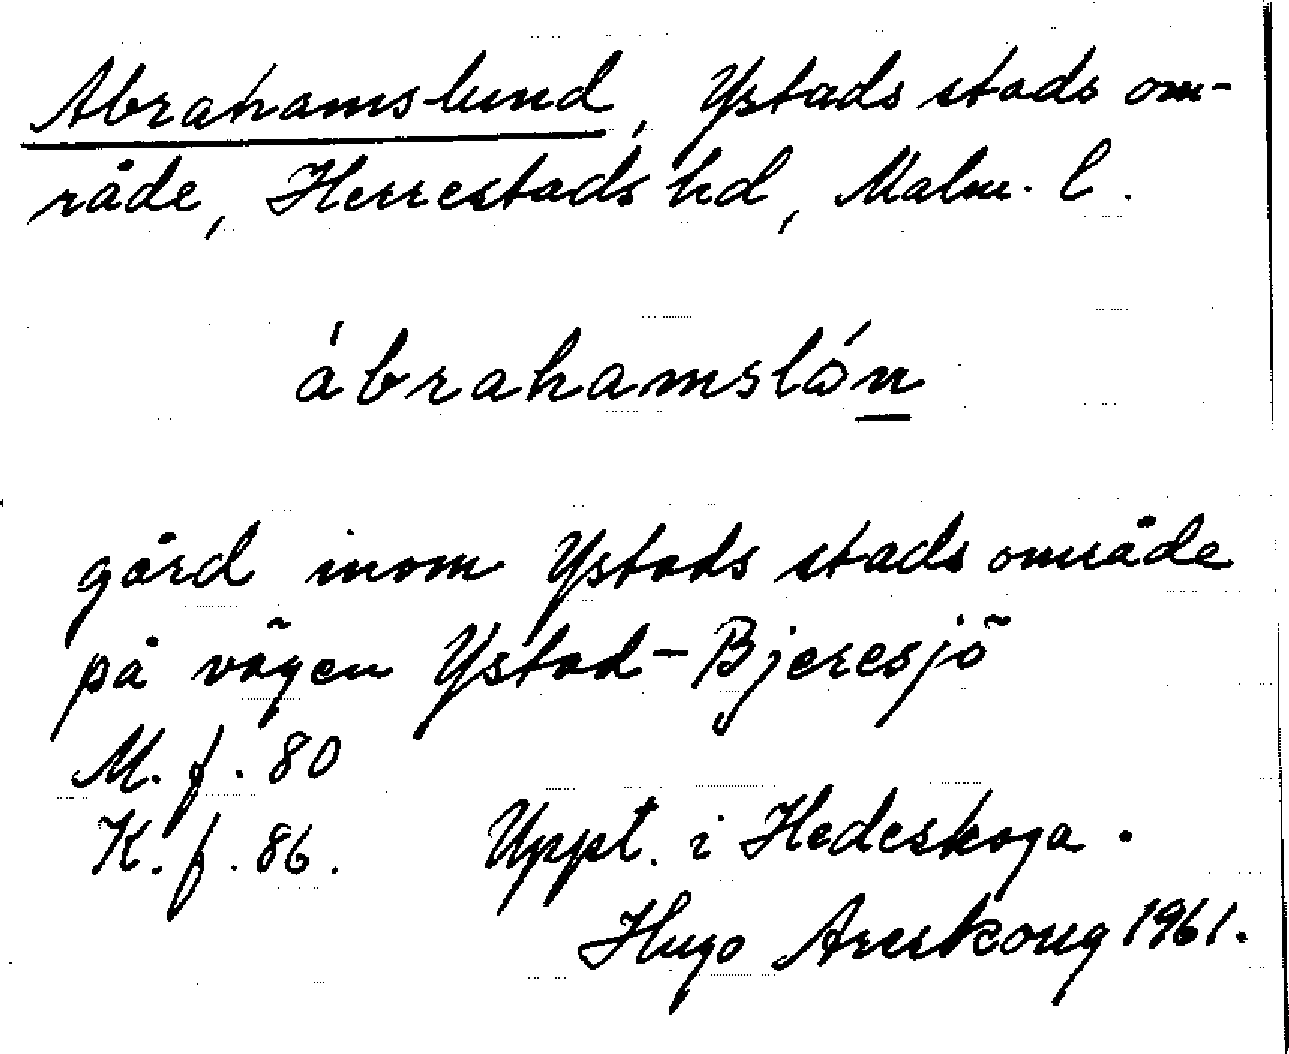 Abrahamslund, Ystads stads om-
råde, Herrestads hd, Malm. l.
ábrahamslón
gård inom Ystads stads område
på vägen Ystad-Bjeresjö
M. f. 80
K. f. 86. Uppt. i Hedeskoga.
Hugo Areskoug 1961.